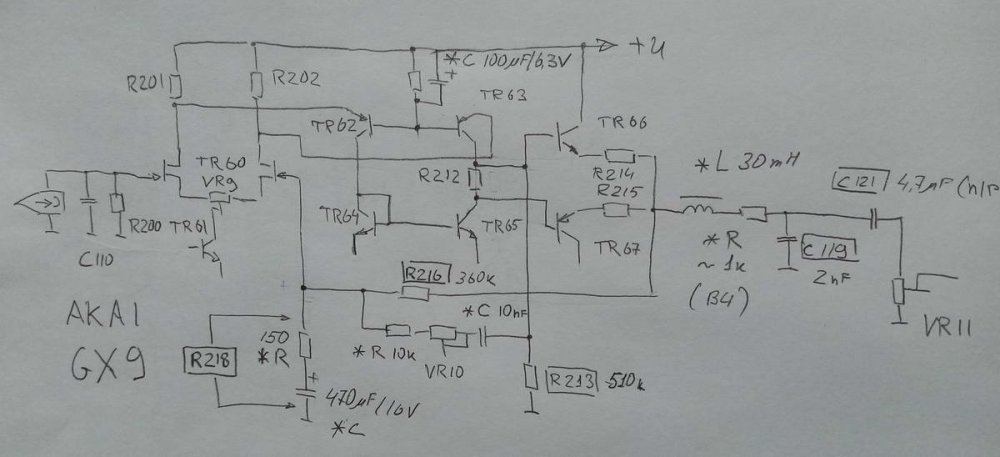 +U
*C 100µF/6,3V
R201
R202
TR62
TR63
TR66
TR60
VR9
R212
R214
R215
*L 30mH
C121
4,7µF (n/p
R200
TR61
TR64
TR65
TR67
C110
R216
360k
*R
~1k
(B4)
C119
2nF
AKAI
GX9
*C 10nF
150
*R
R218
*R 10k
VR10
R213
510k
VR11
470µF/16V
*C